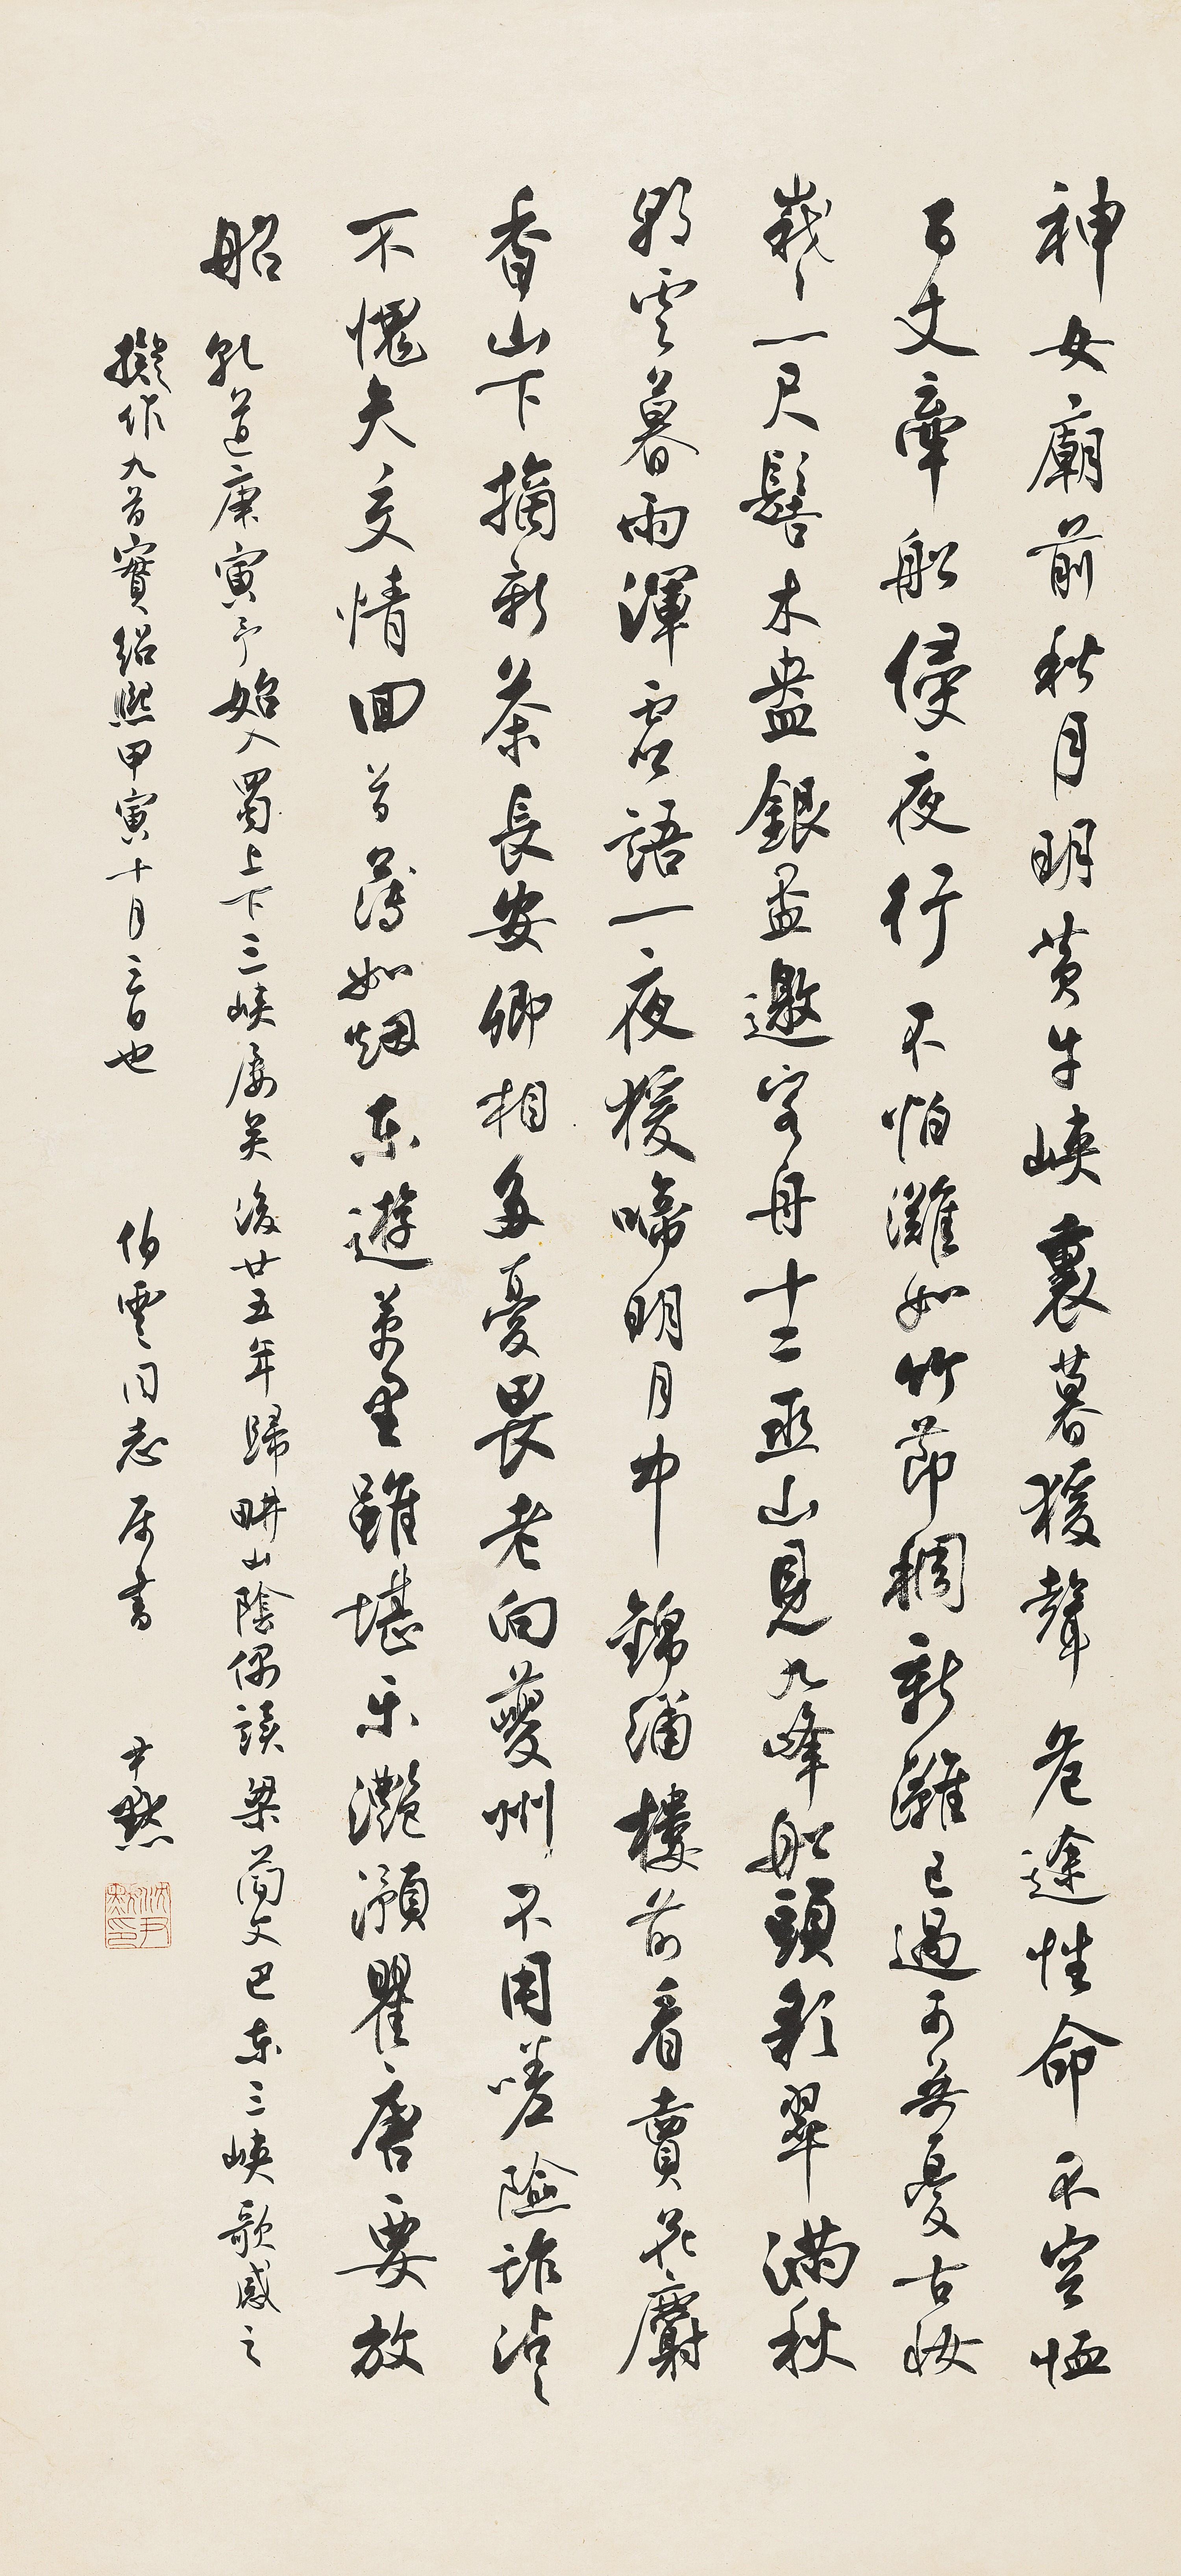 神女廟前秋月明黃牛峽裏暮猨聲危途性命不容恤
百丈牽船侵夜行不怕灘如竹節稠新灘已過可無憂古妝
峩々一尺髻木盎銀盃邀客舟十二巫山見九峰船頭彩翠滿秋
朝雲暮雨渾虛語一夜猨啼明月中錦繡樓前看賣花麝
香山下摘新茶長安卿相多憂畏老向夔州不用嗟險詐沾々
不愧天交情回首薄如烟東遊萬里雖堪樂灩澦瞿唐要放
船 乾道庚寅予始入蜀上下三峽屢矣後廿五年歸畊山陰偶讀梁簡文巴東三峽歌感之
擬作九首實紹熙甲寅十月二日也 伯雲同志屬書 尹默
沈尹默印